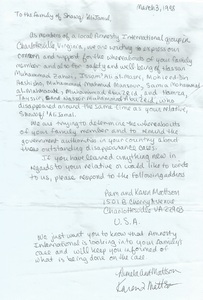 March 3, 1998
To the Family of Shawqi
As members of a local Amnesty International group in
Charlottesville, Virginia, we are writing to express our
concern and support for the whereabouts of your family
member and also for the safety and well being of Hassan
Muhammad
Muhammad Mahmud Mansour, Samir Muhammad
Muhammad and Hamza,
and Nasser Muhammad who
disappeared around the same time as your relative,
Shawqi
We are trying to determine the whereabouts
of your family member and to remind the
government authorities in your country about
these outstanding disappearance cases.
If you have learned anything new in
regards to your relative or would like to write
to us, please respond to the following address
Pam and Karen Mattson
1501 B Cherry Avenue
Charlottesville VA
U.S.A.
We just want you to know that Amnesty
International is looking into your family's
case and will keep you informed of
what is being done on the case
Mattson
Karen